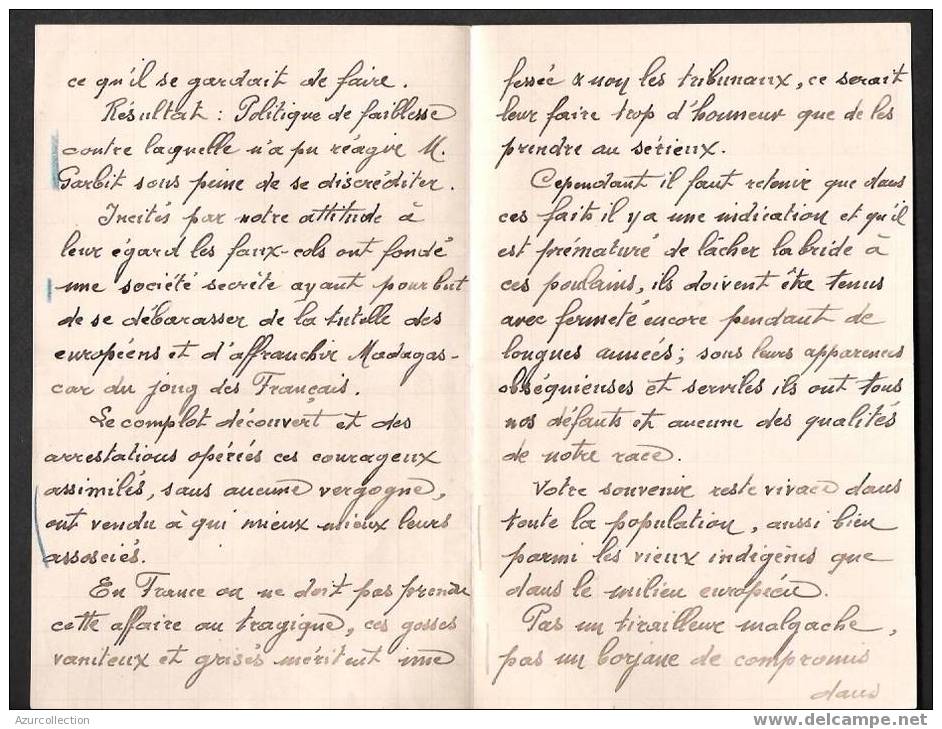 ce qu'il se gardait de faire.
Résultat : Politique de faiblesse
contre laquelle n'a pu réagir M.
Garbit sous peine de se discréditer.
Incités par notre attitude à
leur égard les faux-cols ont fondé
une société secrète ayant pour but
de se débarasser de la tutelle des
européens et d'affranchir Madagas-
car du joug des Français.
Le complot découvert et des
arrestations opérées ces courageux
assimilés, sans aucune vergogne,
ont vendu à qui mieux mieux leurs
associés.
En France on ne doit pas prendre
cette affaire au tragique, ces gosses
vaniteux et grisés méritent une
fessée & non les tribunaux, ce serait
leur faire trop d'honneur que de les
prendre au sérieux.
Cependant il faut retenir que dans
ces faits il y a une indication et qu'il
est prématuré de lâcher la bride à
ces poulains, ils doivent être tenus
avec fermeté encore pendant de
longues années; sous leurs apparences
obséquieuses et serviles ils ont tous
nos défauts et aucune des qualités
de notre race.
Votre souvenir reste vivace dans
toute la population, aussi bien
parmi les vieux indigènes que
dans le milieu européen.
Pas un tirailleur malgache,
pas un borjane de compromis
dans
Azurcollection
delcampe.net